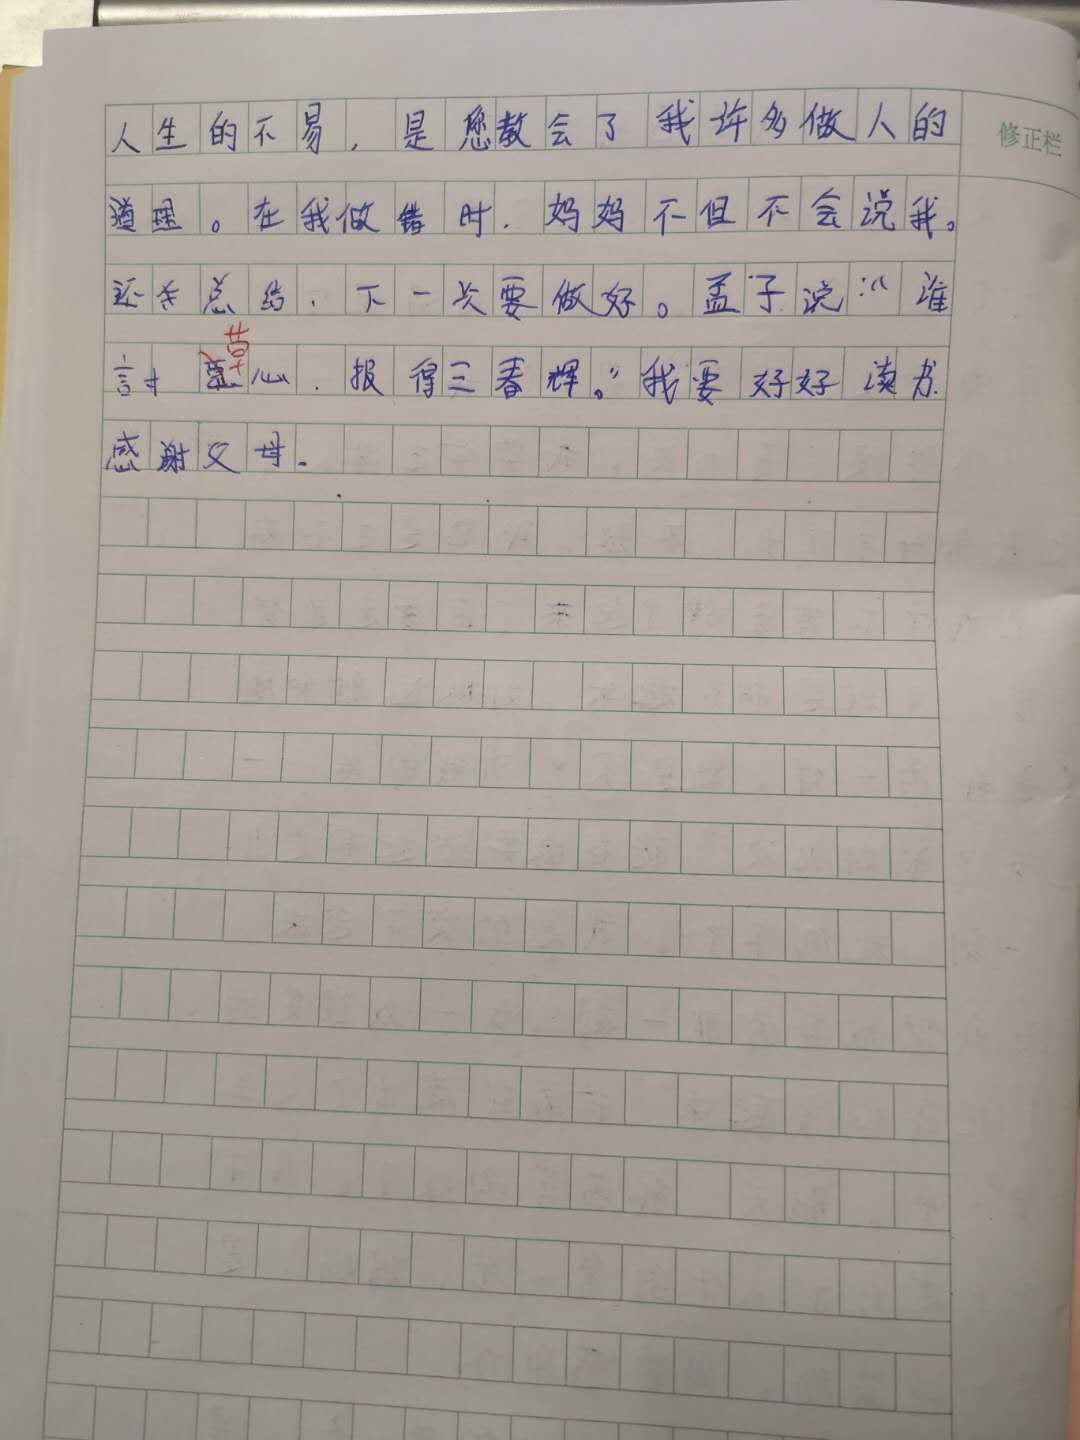 人生的不易，是您教会了我许多做人的
修正栏
道理。在我做错时，妈妈不但不会说我。
还去总结，下一次要做好。孟子说：“谁
草
言寸 心，报得三春辉。”我要好好读书
感谢父母。